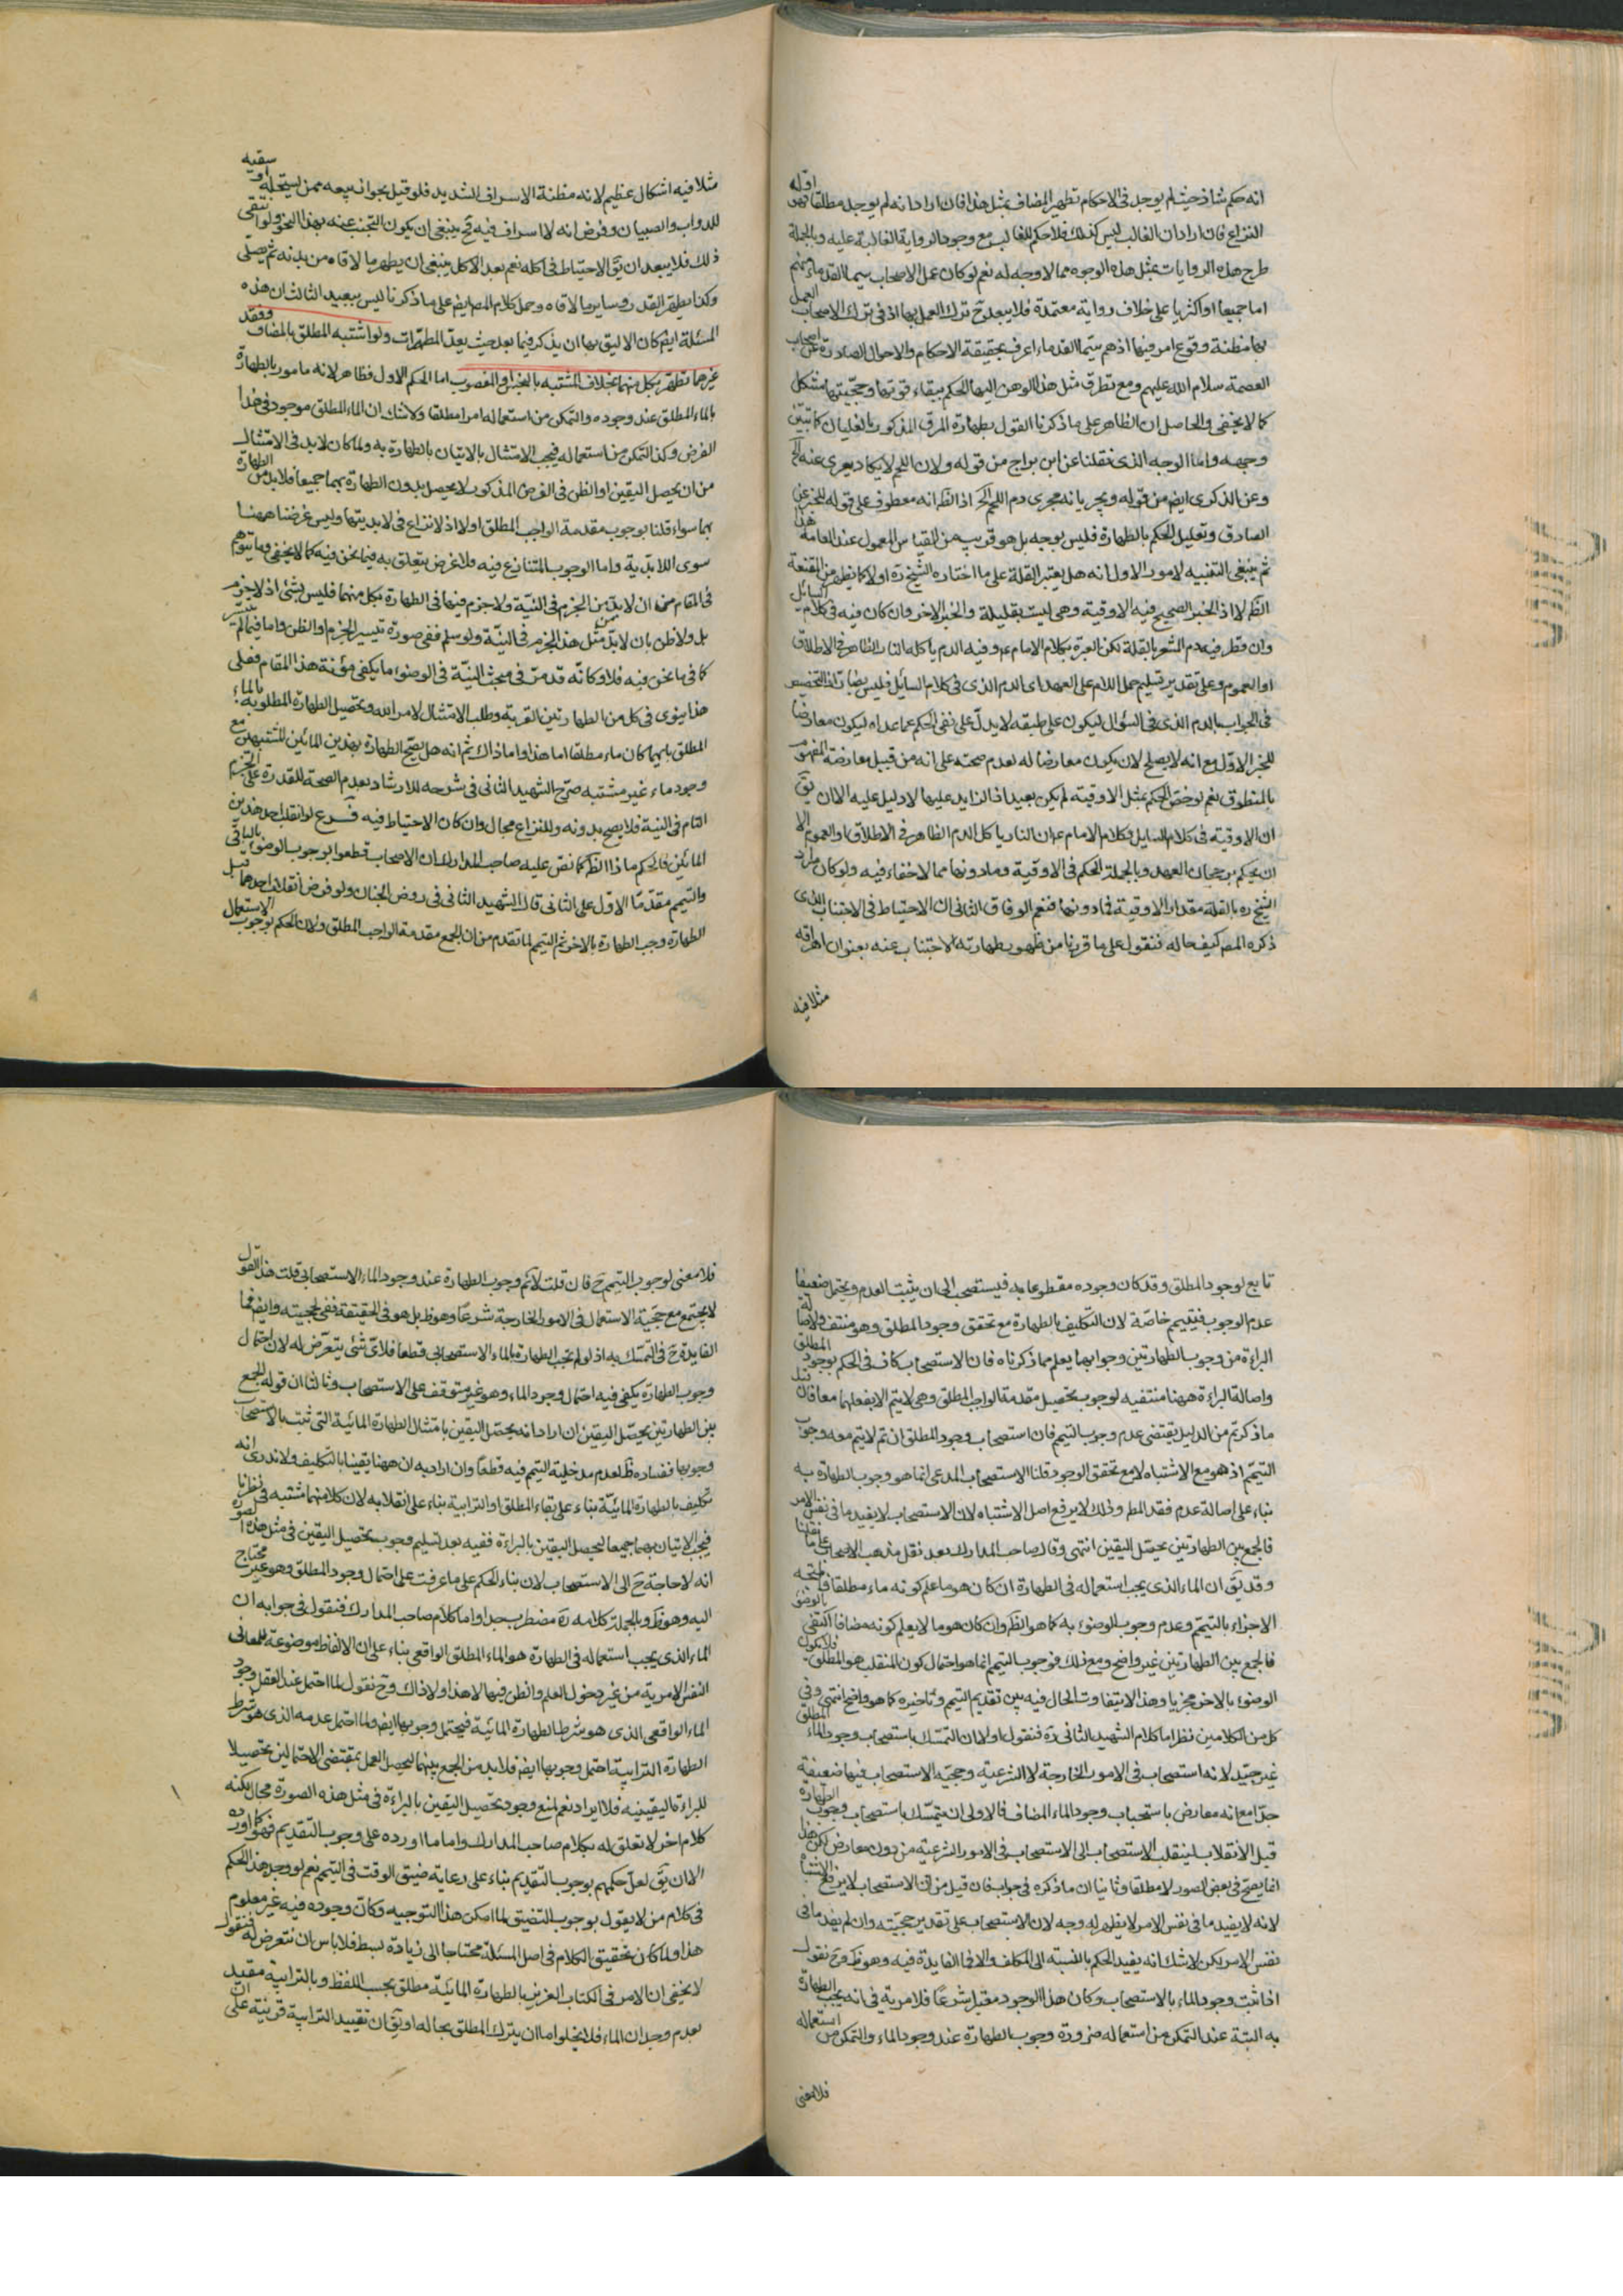 انه حكم شاذ حيث لم يوجد فى الاحكام تطهير المضاف بمثل هذا فان اراد انه لم يوجد مطلقا فهو اوله
النزاع فان اراد ان الغالب ليس كذلك فلا حكم للغالب مع وجود الرواية الغالبة عليه وبالجملة
طرح هذه الروايات بمثل هذه الوجوه مما لا وجه له نعم لو كان عمل الاصحاب سيما القدماء منهم
اما جميعا او اكثريا على خلاف رواية معتمدة فلا يبعد ح ترك العمل بها اذ فى ترك الاصحاب العمل
بها مظنة وقوع امر فيها اذ هم سيما القدماء اعرف بحقيقة الاحكام والاحوال الصادرة عن اصحاب
العصمة سلام الله عليهم ومع تطرق مثل هذا الوهن اليها الحكم ببقاء قوتها وحجيتها مشكل
كما لا يخفى والحاصل ان الظاهر على ما ذكرنا القول بطهارة المرق المذكور بالغليان كما تبين
وجهه واما الوجه الذى نقلنا عن ابن براج من قوله ولان اللحم لا يكاد يعرى عنه الخ
وعن الذكرى ايض من قوله ويجريانه مجرى دم اللحم الخ اذ الظ انه معطوف على قوله للخبر عن
الصادق وتعليل للحكم بالطهارة فليس بوجه بل هو قريب من القياس المعمول عند العامة هذا
ثم ينبغى التنبيه لامور الاول انه هل يعتبر القلة على ما اختاره الشيخ ره او لا كما يظهر من المقنعة
الظ لا اذ الخبر الصحيح فيه الاوقية وهى ليست بقليلة والخبر الاخر وان كان فيه فى كلام السائل
وان قطر فيه دم الشعر بالقلة لكن العبرة بكلام الامام ع وفيه الدم ياكله النار الظاهر فى الاطلاق
او العموم وعلى تقدير تسليم حمل اللام على العهد اى الدم الذى فى كلام السايل فليس بضار اذ التخصيص
فى الجواب بالدم الذى فى السؤال ليكون على طبقه لا يدل على نفى الحكم عما عداه ليكون معارضا
للخبر الاول مع انه لا يصلح لان يكون معارضا له لعدم صحته على انه من قبيل معارضة المفهوم
بالمنطوق نعم لو خص الحكم بمثل الاوقية لم يكن بعيدا اذ الزايد عليها لا دليل عليه الا ان يق
ان الاوقية فى كلام السايل وكلام الامام ع ان النار ياكل الدم الظاهر فى الاطلاق او العموم الا
ان يحكم برجحان العهد وبالجملة الحكم فى الاوقية وما دونها مما لا خفاء فيه ولو كان مراد
الشيخ ره بالقلة مقدار الاوقية فما دونها فنعم الوفاق الثانى ان الاحتياط فى الاجتناب الذى
ذكره المص كيف حاله فنقول على ما قررنا من ظهور طهارته الاجتناب عنه بعنوان اهراقه
مثلا فيه
مثلا فيه اشكال عظيم لانه مظنة الاسراف الشديد فلو قيل بجواز بيعه ممن يستحله او سقيه
للدواب والصبيان وفرض انه لا اسراف فيه ح ينبغى ان يكون التجنب عنه بهذا النحو ولو انتفى
ذلك فلا يبعد ان يق الاحتياط فى اكله نعم بعد الاكل ينبغى ان يطهر ما لاقاه من بدنه ثم يصلى
وكذا يطهر القدر وساير ما لاقاه وحمل كلام المص ايض على ما ذكرنا ليس ببعيد الثالث ان هذه
المسئلة ايض كان الاليق بها ان يذكر فيما بعد حيث يعد المطهرات ولو اشتبه المطلق بالمضاف وفقد
غيرهما تطهر بكل منهما بخلاف المشتبه بالنجس او المغصوب اما الحكم الاول فظاهر لانه مامور بالطهارة
بالماء المطلق عند وجوده والتمكن من استعماله امرا مطلقا ولا شك ان الماء المطلق موجود فى هذا
الفرض وكذا التمكن من استعماله فيجب الامتثال بالاتيان بالطهارة به ولما كان لابد فى الامتثال
من ان يحصل اليقين او الظن فى الفرض المذكور لا يحصل بدون الطهارة بهما جميعا فلابد من الطهارة
بهما سواء قلنا بوجوب مقدمة الواجب المطلق او لا اذ لا نزاع فى لابديتها وليس غرضنا ههنا
سوى اللابدية واما الوجوب المتنازع فيه فلا غرض يتعلق به فيما نحن فيه كما لا يخفى وما يتوهم
فى المقام من ان لابد من الجزم فى النية ولا جزم فيها فى الطهارة بكل منهما فليس بشئ اذ لا جزم
بل ولا ظن بان لابد من مثل هذا الجزم فى النية ولو سلم ففى صورة تيسير الجزم او الظن واما فيما لم يتيسر
كما فى ما نحن فيه فلا وكانه قد مر فى مبحث النية فى الوضوء ما يكفى مؤنة هذا المقام فعلى
هذا ينوى فى كل من الطهارتين القربة وطلب الامتثال لامر الله وتحصيل الطهارة المطلوبة بالماء
المطلق بايهما كان ماء مطلقا اما هذا واما ذاك ثم انه هل يصح الطهارة بهذين المائين المشتبهين مع
وجود ماء غير مشتبه صرح الشهيد الثانى فى شرحه للارشاد بعدم الصحة للقدرة على الجزم
التام فى النية فلا يصح بدونه وللنزاع مجال وان كان الاحتياط فيه فرع لو انقلب احد هذين
المائين فالحكم ماذا الظ كما نص عليه صاحب المدارك ان الاصحاب قطعوا بوجوب الوضوء بالباقى
والتيمم مقدما الاول على الثانى قال الشهيد الثانى فى روض الجنان ولو فرض انقلاب احدهما قبل
الطهارة وجب الطهارة بالاخر ثم التيمم لما تقدم من ان الجمع مقدمة الواجب المطلق ولان الحكم بوجوب الاستعمال
تابع لوجود المطلق وقد كان وجوده مقطوعا به فيستصحب الى ان يثبت العدم ويحتمل ضعيفا
عدم الوجوب فيتيمم خاصة لان التكليف بالطهارة مع تحقق وجود المطلق وهو منتف ولاصالة
البراءة من وجوب الطهارتين وجوابهما يعلم مما ذكرناه فان الاستصحاب كاف فى الحكم بوجود المطلق
واصالة البراءة ههنا منتفيه لوجوب تحصيل مقدمة الواجب المطلق وهى لا يتم الا بفعلهما معا فان قيل
ما ذكرتم من الدليل يقتضى عدم وجوب التيمم فان استصحاب وجود المطلق ان تم لا يتم معه وجوب
التيمم اذ هو مع الاشتباه لا مع تحقق الوجود قلنا الاستصحاب المدعى انما هو وجوب الطهارة به
بناء على اصالة عدم فقد المط وذلك لا يرفع اصل الاشتباه لان الاستصحاب لا يفيد ما فى نفس الامر
فالجمع بين الطهارتين يحصل اليقين انتهى وقال صاحب المدارك بعد نقل مذهب الاصحاب على ما نقلنا
وقد يق ان الماء الذى يجب استعماله فى الطهارة ان كان هو ما علم كونه ماء مطلقا فالمتجه
الاجزاء بالتيمم وعدم وجوب الوضوء به كما هو الظ وان كان هو ما لا يعلم كونه مضافا اكتفى بالوضوء
فالجمع بين الطهارتين غير واضح ومع ذلك فوجوب التيمم انما هو لاحتمال كون المنقلب هو المطلق فلا يكون
الوضوء بالاخر مجزيا وهذا لا يتفاوت الحال فيه بين تقديم التيمم وتاخيره كما هو واضح انتهى وفى
كل من الكلامين نظر اما كلام الشهيد الثانى ره فنقول اولا ان التمسك باستصحاب وجود الماء المطلق
غير جيد لانه استصحاب فى الامور الخارجة لا الشرعية وحجيه الاستصحاب فيها ضعيفة
جدا مع انه معارض باستصحاب وجود الماء المضاف فالاولى ان يتمسك باستصحاب وجوب الطهارة
قبل الانقلاب لينقلب الاستصحاب الى الاستصحاب فى الامور الشرعية من دون معارض لكن هذا
انما يصح فى بعض الصور لا مطلقا وثانيا ان ما ذكره فى جواب فان قيل من ان الاستصحاب لا يرفع الاشتباه
لانه لا يفيد ما فى نفس الامر لا يظهر له وجه لان الاستصحاب على تقدير حجيته وان لم يفد ما فى
نفس الامر لكن لا شك انه يفيد الحكم بالنسبة الى المكلف والا فما الفايدة فيه وهو ظ وح نقول
اذا ثبت وجود الماء بالاستصحاب وكان هذا الوجود معتبرا شرعا فلا مرية فى انه يجب الطهارة
به البتة عند التمكن من استعماله ضرورة وجوب الطهارة عند وجود الماء والتمكن من استعماله
فلا معنى
فلا معنى لوجوب التيمم ح فان قلت لا نم وجوب الطهارة عند وجود الماء الاستصحابى قلت هذا القول
لا يجتمع مع حجية الاستعمال فى الامور الخارجة شرعا وهو ظ بل هو فى الحقيقة نفى لحجيته وايض فما
الفايدة ح فى التمسك به اذ لو لم يجب الطهارة بالماء الاستصحابى قطعا فلاى شئ يتعرض له لان احتمال
وجوب الطهارة يكفى فيه احتمال وجود الماء وهو غير متوقف على الاستصحاب وثالثا ان قوله فالجمع
بين الطهارتين يحصل اليقين ان اراد انه يحصل اليقين بامتثال الطهارة المائية التى ثبت بالاستصحاب
وجوبها ففساده ظ لعدم مدخلية التيمم فيه قطعا وان اراد به ان ههنا يقينا بالتكليف ولا ندرى انه
تكليف بالطهارة المائية بناء على بقاء المطلق او الترابية بناء على انقلابه لان كلا منهما مشتبه فى نظرنا
فيجب الاتيان بهما جميعا ليحصل اليقين بالبراءة ففيه بعد تسليم وجوب تحصيل اليقين فى مثل هذه الصورة
انه لا حاجة ح الى الاستصحاب لان بناء الحكم على ما عرفت على احتمال وجود المطلق وهو غير محتاج
اليه وهو ظ وبالجملة كلامه ره مضطرب جدا واما كلام صاحب المدارك فنقول فى جوابه ان
الماء الذى يجب استعماله فى الطهارة هو الماء المطلق الواقعى بناء على ان الالفاظ موضوعة للمعانى
النفس الامرية من غير دخول العلم والظن فيها لا هذا ولا ذاك وح نقول لما احتمل عند العقل وجود
الماء الواقعى الذى هو شرط الطهارة المائية فيحتمل وجوبها ايض ولما احتمل عدمه الذى هو شرط
الطهارة الترابية احتمل وجوبها ايض فلابد من الجمع بينهما ليحصل العمل بمقتضى الاحتمالين تحصيلا
للبراءة اليقينيه فلا ايراد نعم لمنع وجود تحصيل اليقين بالبراءة فى مثل هذه الصورة مجال لكنه
كلام اخر لا تعلق له بكلام صاحب المدارك واما ما اورده على وجوب التقديم فهو كما اورده
الا ان يق لعل حكمهم بوجوب التقديم بناء على رعاية ضيق الوقت فى التيمم نعم لو وجد هذا الحكم
فى كلام من لا يقول بوجوب التضيق لما امكن هذا التوجيه وكان وجوده فيه غير معلوم
هذا ولما كان تحقيق الكلام فى اصل المسئلة محتاجا الى زيادة بسط فلا باس ان نتعرض له فنقول
لا يخفى ان الامر فى الكتاب العزيز بالطهارة المائية مطلق بحسب اللفظ وبالترابية مقيد
بعدم وجدان الماء فلا يخلو اما ان يترك المطلق بحاله او يق ان تقييد الترابية قرينة على ان